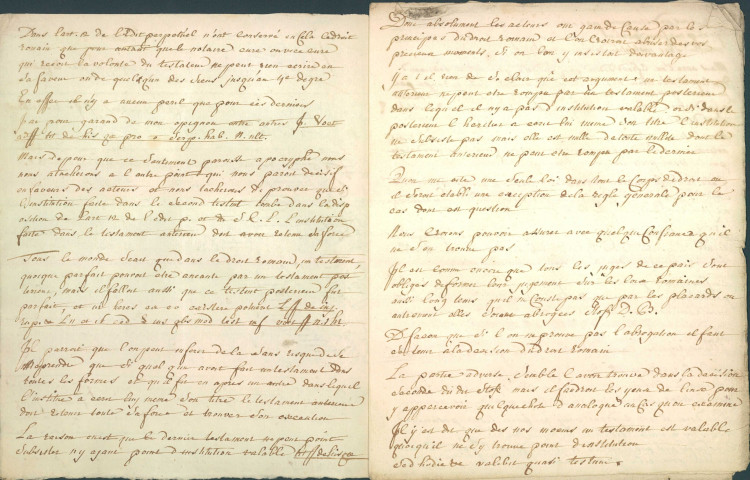 Dans l'art: 12 de l'Edit perpethel n'ont conservé en cela le droit
romain que pour autant que le notaire curé ou vice curé
qui recoit la volonté du testateur ne peut rien ecrire en
sa faveur ou de quelqu'un des siens jusqu'au 4e degré
En effet il n'y a aucun peril que pour ces derniers
j'ai pour garand de mon opignion entre autres P. Voet
ad ff tit de his quæ pro
Mais de peur que ce sentiment paroisse apocryphe nous
nous attacherons a l'autre point qui nous paroit decisif
en faveur des acteurs et nous tacherons de prouver que si
l'institution faite dans le second testat tombe dans la dispo
sition de l'art 12 de l'edit p. et du S. C. L. l'institution
faite dans le testament anterieur doit avoir retenu sa force
Tous le monde scait que dans le droit romain, un testament,
quoique parfait pouvoit être aneanti par un testament post
erieur, mais il falloit aussi que ce testament posterieur fut
parfait, et
Il paroit que l'on peut inferer de la sans risque de se
meprendre que si quelqu'un avoit fait un testament dans
toutes les formes et qu'il fit en apres un autre dans lequel
l'institué a ecrit luy meme son titre le testament anterieur
doit retenir toute sa force et trouver son execution
La raison en est que le dernier testament ne peut point
subsister n'y ayant point d'institution valable
Donc absolument les acteurs ont gain de cause par les
principes du droit romain et l'on croiroit abuser de vos
precieux momens, si on l'on y insistoit d'avantage
Y a t il rien de si clair que cet argument; un testament
anterieur ne peut etre rompu par un testament posterieur
dans lequel il n'y a pas d'institution valable or si dans le
posterieur l'heritier a ecrit lui meme son titre l'institution
ne subsiste pas mais elle est nulle de toute nullité dont le
testament anterieur ne peut etre rompu par le dernier
Qu'on me cite une seule loix dans tout le Corps de droit ou
il seroit etabli une exception de la regle generale pour le
cas dont est question
Nous croions pouvoir assurer avec quelque confiance qu'il
ne s'en trouve pas
Il est connu encore que tous les juges de ce pais sont
obligés de former leur jugement sur les loix romaines
aussi long tems qu'il ne conste pas que par les placards ou
autrement elles soient abrogées Stock. D. D.
De facon que si l'on ne prouve pas l'abrogation il faut
s'en tenir a la decision du droit romain
La partie adverse semble l'avoir trouvé dans la decision
seconde du dit Stok mais il faudroit les yeux de linx pour
y appercevoir quelque chose d'analogue au cas qu'on examine
Il y est dit que de nos moeurs un testament est valable
quoiqu'il ne s'y trouve point d'institution
sed hodie valebit quasi testam.